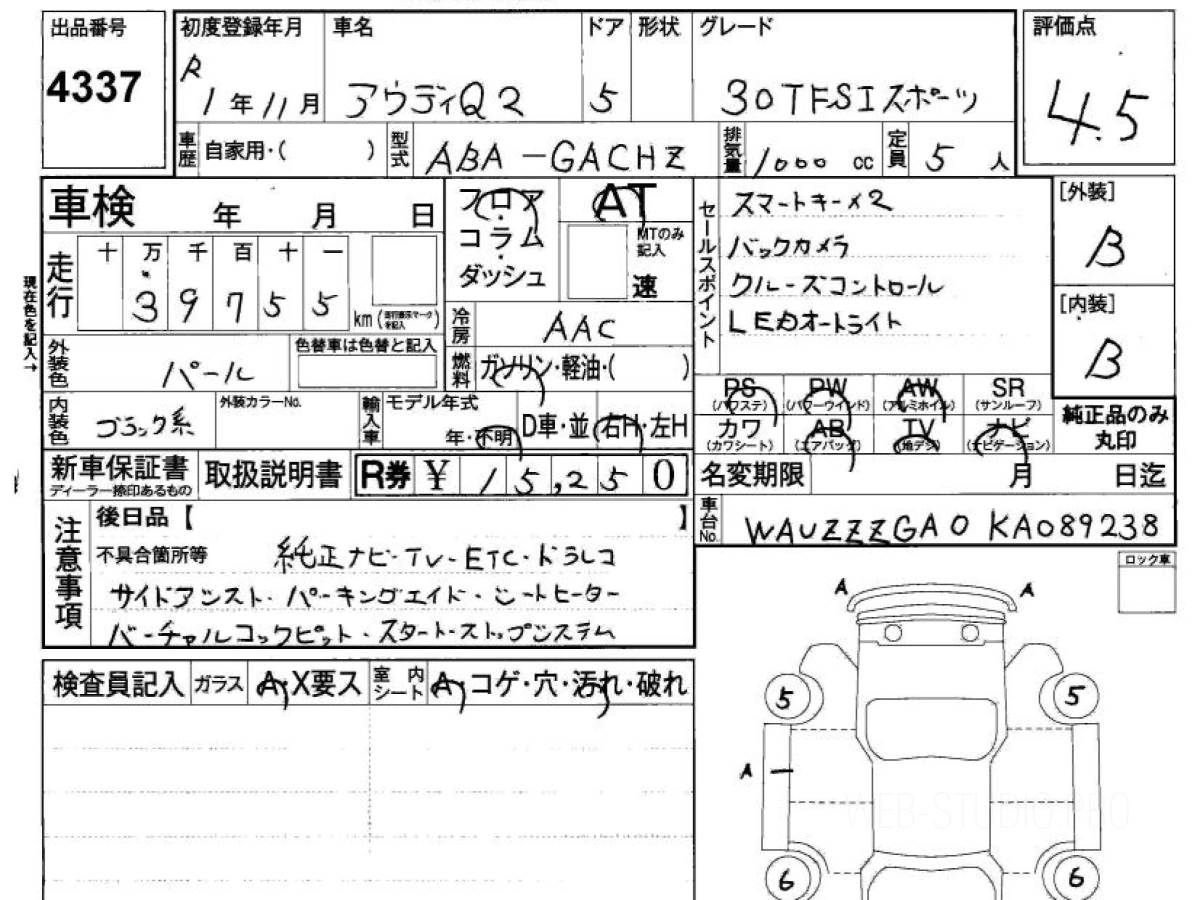 出品番号
4337
初度登録年月
R
1年11月
車名
アウディQ2
ドア
5
形状
グレード
30TFSIスポーツ
評価点
4.5
車歴
自家用・( )
型式
ABA-GACHZ
排気量
1000 cc
定員
5人
車検 年 月 日
走行
十 万 千 百 十 一
3 9 7 5 5 km
現在色を記入→
フロア・コラム・ダッシュ
AT
MTのみ記入
速
冷房
AAC
燃料
ガソリン・軽油・( )
セールスポイント
スマートキーメ2
バックカメラ
クルーズコントロール
LEDオートライト
[外装]
B
[内装]
B
外装色
パール
色替車は色替と記入
内装色
ブラック系
外装カラーNo.
輸入車
モデル年式
年・不明
D車・並
右H・左H
PS
(パワステ)
PW
(パワーウインド)
AW
(アルミホイル)
SR
(サンルーフ)
カワ
(カワシート)
AB
(エアバッグ)
TV
(地デジ)
ナビ
(ナビゲーション)
純正品のみ
丸印
新車保証書
ディーラー捺印あるもの
取扱説明書
R券 ¥ 15,250
名変期限 月 日迄
車台No.
WAUZZZGA0KA089238
注意事項
後日品【 】
不具合箇所等 純正ナビ・TV・ETC・ドラレコ
サイドアシスト・パーキングエイド・シートヒーター
バーチャルコックピット・スタートストップシステム
検査員記入
ガラス
A・X要ス
室内シート
A・コゲ・穴・汚れ・破れ
ロック車
A
A
5
5
A
6
6
WEB-STUDIO.PRO